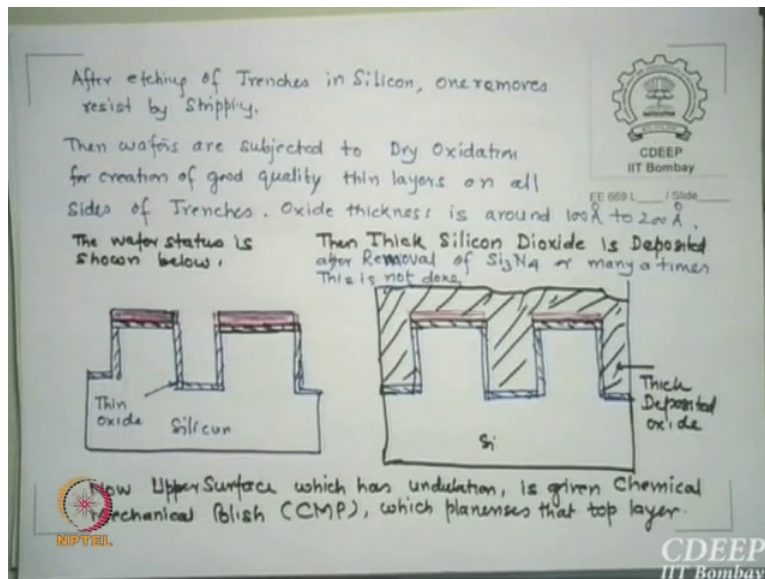 After etching of Trenches in Silicon, one removes
resist by Stripping.
Then wafers are subjected to Dry Oxidation
for creation of good quality thin layers on all
sides of Trenches. Oxide thickness is around 100Å to 200Å.
CDEEP
IIT Bombay
EE 669 L____ / Slide____
The wafer status is
shown below.
Then Thick Silicon Dioxide is Deposited
after Removal of Si3N4 or many a times
This is not done
Thin
oxide
Silicon
Si
Thick
Deposited
oxide
Now Upper Surface which has undulation, is given Chemical
Mechanical Polish (CMP), which planerises that top layer.
NPTEL
CDEEP
IIT Bombay